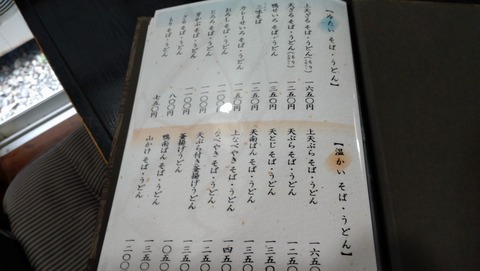 【冷たい そば・うどん】
上天ざる そば・うどん 一六五〇円
天ざる そば・うどん 一二五〇円
鴨せいろ そば・うどん 一三五〇円
三味そば 一二五〇円
カレーせいろ そば・うどん
おろし そば・うどん
とろろ そば・うどん
釜かぶ そば・うどん
ざる そば・うどん 八〇〇円
もり そば・うどん 七五〇円
【温かい そば・うどん】
上天ぷら そば・うどん 一六五〇
天ぷら そば・うどん 一二五〇
天とじ そば・うどん 一三五〇
天南ばん そば・うどん 一三五〇
上なべやき そば・うどん
なべやき そば・うどん 一四五〇
天ぷら付き釜揚げうどん 一三五〇
釜揚げうどん
鴨南ばん そば・うどん 一三五〇
山かけ そば・うどん 一二〇〇